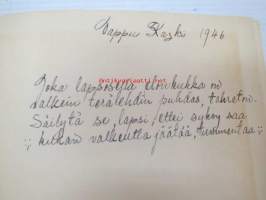 Vappu Kaski 1946
Joka lapsosella elonkukka on
valkein terälehdin puhdas, tahraton.
Säilytä se, lapsi, ettei syksy saa
:,: kukkan valkeutta jäätää, turmentaa :,: